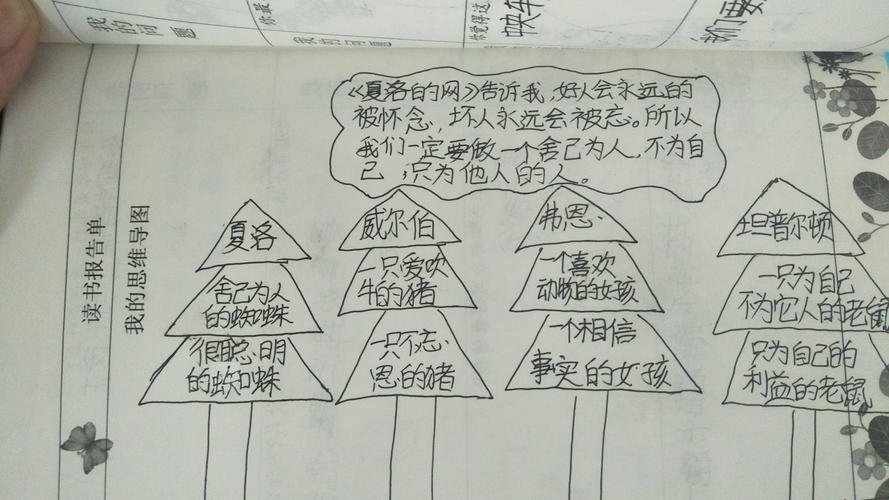 我的问题
我的问题
你最
你觉得这
快车
我们要
读书报告单
我的思维导图
《夏洛的网》告诉我,好人会永远的
被怀念,坏人永远会被忘。所以
我们一定要做一个舍己为人,不为自
己,只为他人的人。
夏洛
舍己为人
的蜘蛛
很聪明
的蜘蛛
威尔伯
一只爱吹
牛的猪
一只不忘
恩的猪
弗恩
一个喜欢
动物的女孩
一个相信
事实的女孩
坦普尔顿
一只为自己
不为它人的老鼠
只为自己的
利益的老鼠